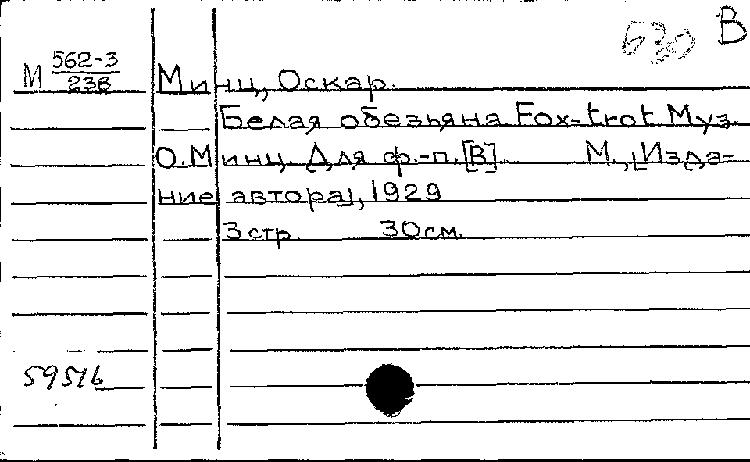 630 В
М 562-3/238 Минц, Оскар.
Белая обезьяна. Fox-trot. Муз.
О.Минц. Для ф.-п.[В]. М., [Изда-
ние автора], 1929
3 стр. 30см.
59516